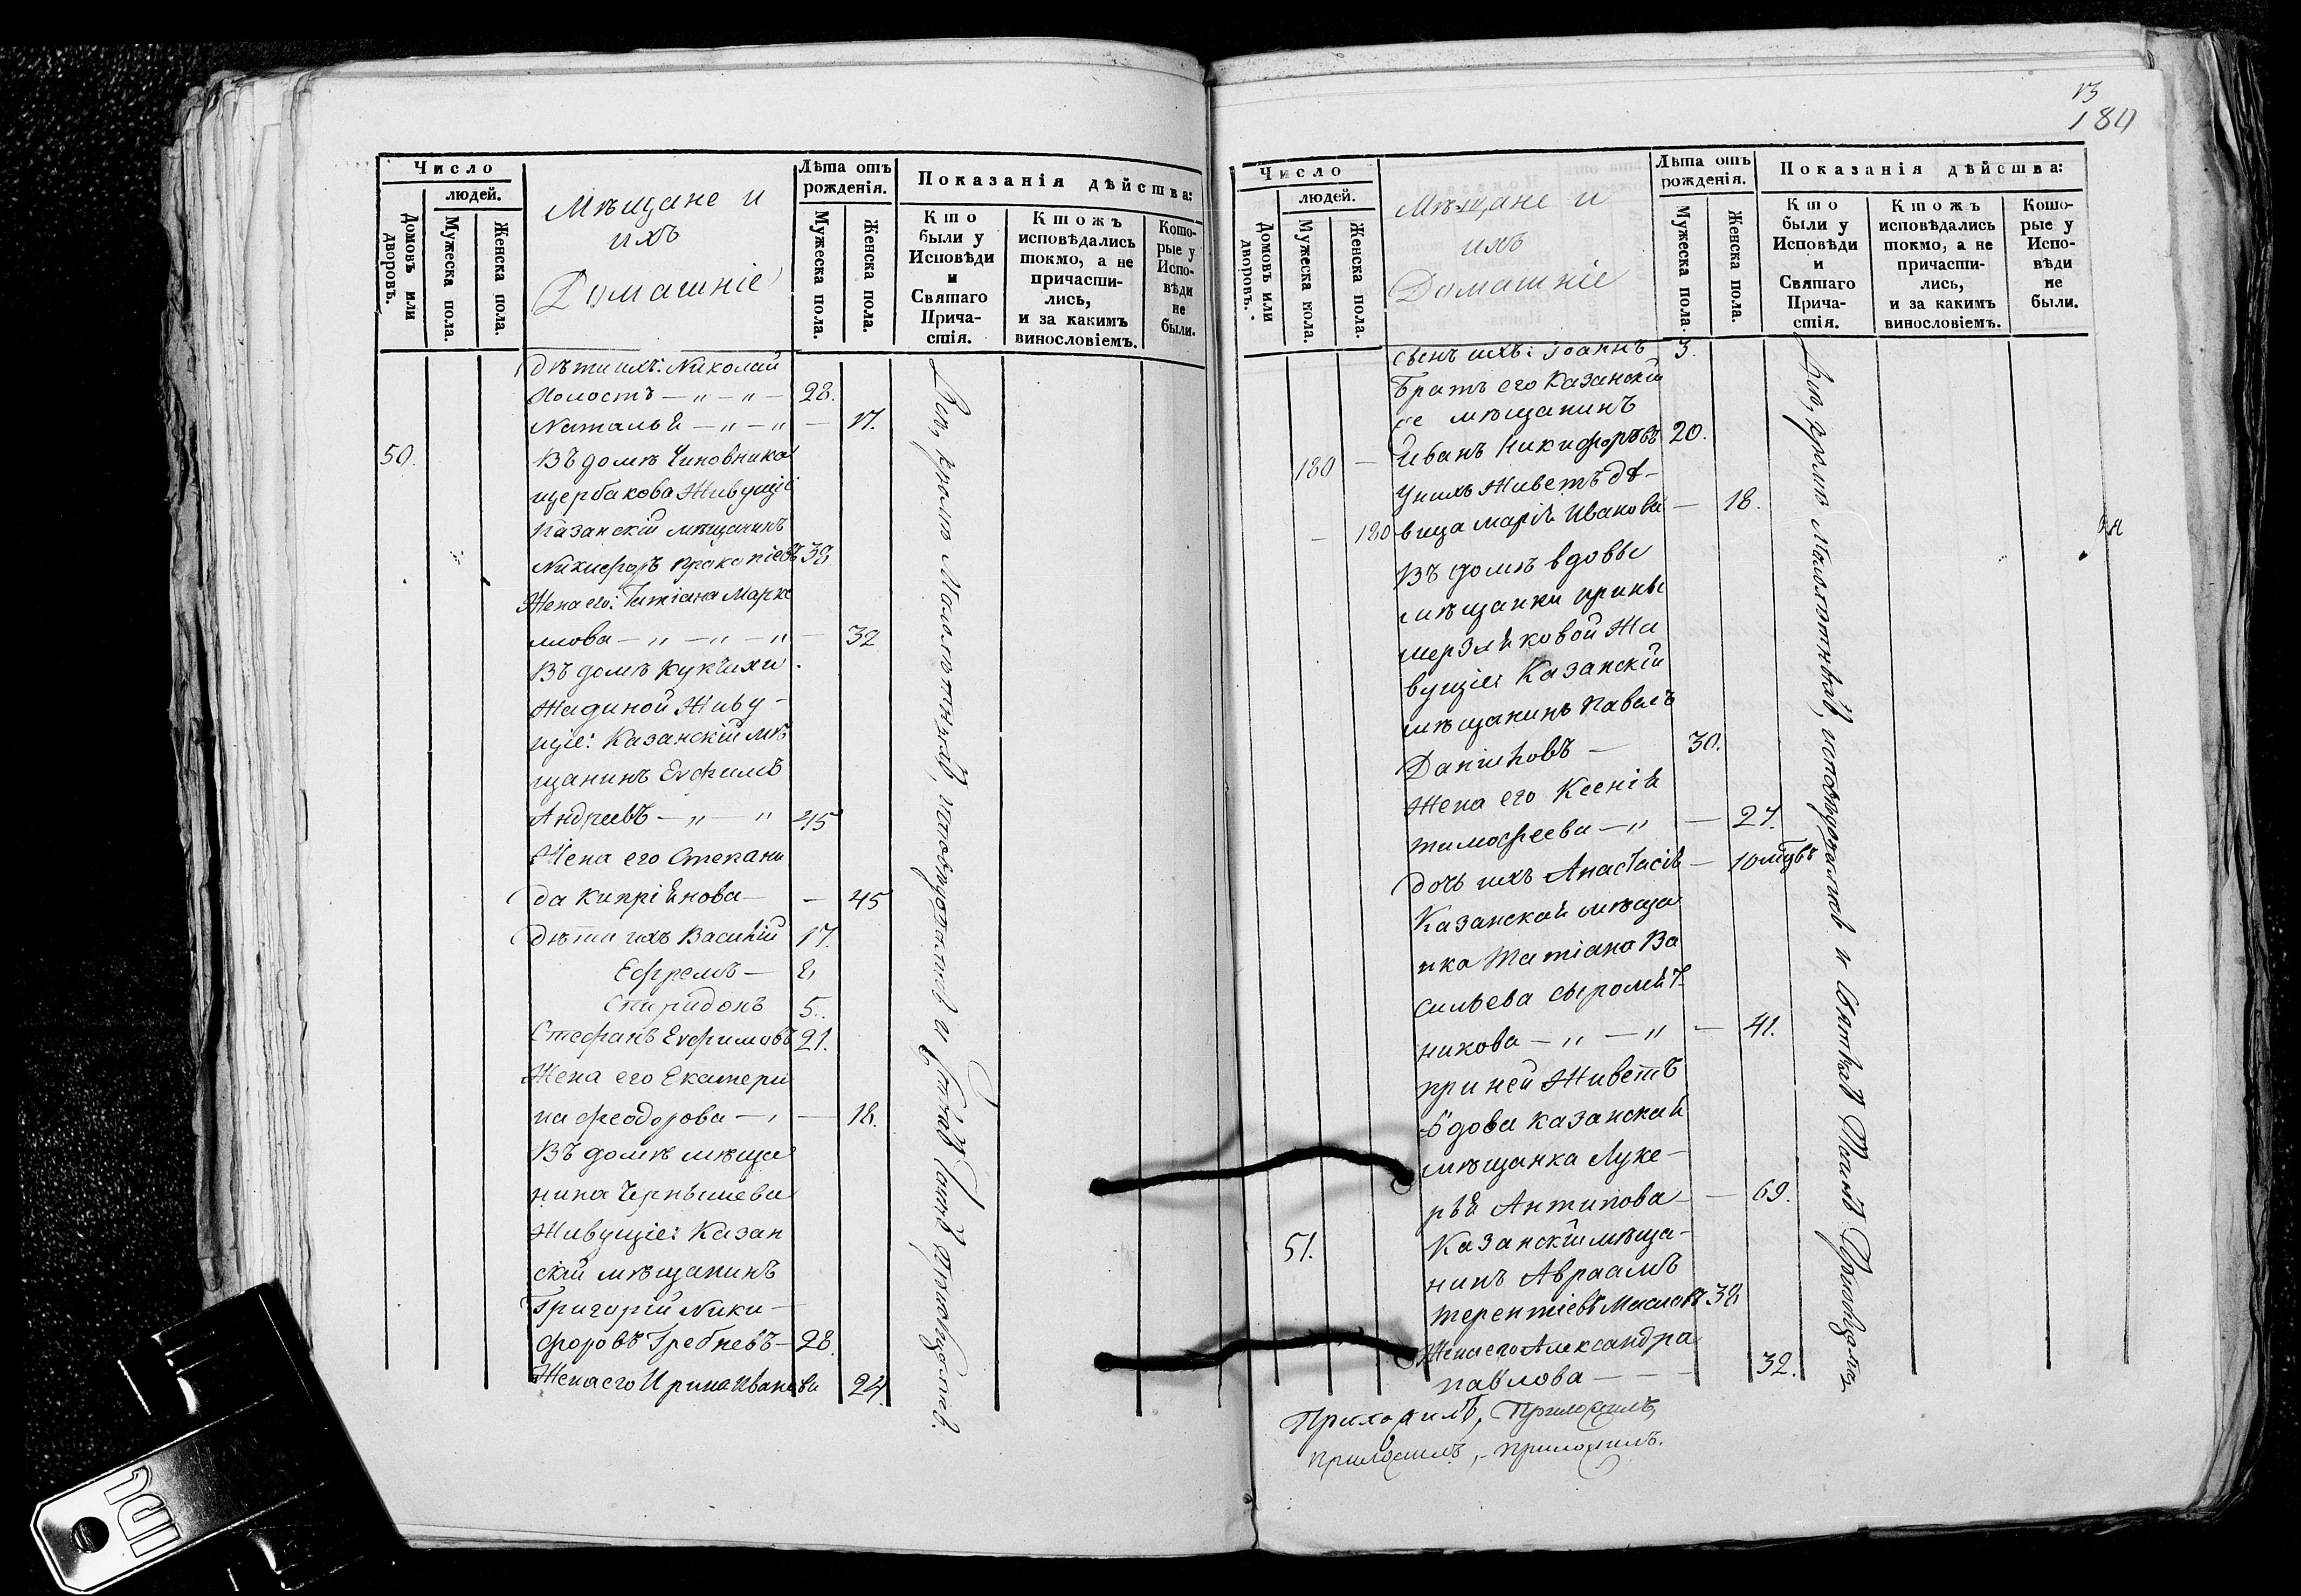 Число
людей.
Домовъ или дворовъ.
Мужеска пола.
Женска пола.
Мѣщане и
ихъ
Домашніе
Лѣта отъ рожденія.
Мужеска пола.
Женска пола.
Показанія дѣйства:
Кто были у Исповѣди и Святаго Прича-стія.
Ктожъ исповѣдались токмо, а не причасти-лись, и за какимъ винословіемъ.
Кото-рые у Испо-вѣди не были.
Дѣти ихъ: Николай
Холостъ — „ — „ — 28.
Наталья — „ — „ — 17.
50. Въ домѣ Чиновника
Щербакова Живущіе
Казанскій мѣщанинъ
Никифоръ Прокопіевъ 38
Жена его: Татіана Марке
лова — „ — „ — „ — 32
Въ домѣ
Жадиной Живу-
щіе: Казанскій мѣ
щанинъ Евфимъ
Андреевъ — „ — „ 45
Жена его Степани
да Кипріянова — — 45
Дѣти ихъ Василій 17.
Ефремъ — 8
Спиридонъ 5.
Стефанъ Евфимовъ 21.
Жена его Екатери
на Феодорова — „ — 18.
Въ домѣ мѣща
нина Чернышева
Живущіе: Казан
скій мѣщанинъ
Григорій Ники-
форовъ Гребневъ — 28.
Жена его Ирина Иванова 24.
Всѣ, кромѣ Малолѣтныхъ, исповѣдались и Святыхъ Таинъ
13
180
Число
людей.
Домовъ или дворовъ.
Мужеска пола.
Женска пола.
Мѣщане и
ихъ
Домашніе
Лѣта отъ рожденія.
Мужеска пола.
Женска пола.
Показанія дѣйства:
Кто были у Исповѣди и Святаго Прича-стія.
Ктожъ исповѣдались токмо, а не причасти-лись, и за какимъ винословіемъ.
Кото-рые у Испо-вѣди не были.
Сынъ ихъ: Іоаннъ 3.
Братъ его Казанскій
же мѣщанинъ
180 — Иванъ Никифоровъ 20.
У нихъ Живетъ дѣ-
— 180 вица Марія Иванова — 18.
Въ домѣ вдовы
мѣщанки Ирины
Мерзляковой Жи
вущіе: Казанскій
мѣщанинъ Павелъ
Даниловъ — 30.
Жена его Ксенія
Тимофеева — „ — 27.
Дочь ихъ Анастасія — 10
Казанская мѣща
нка Татіана Ва
сильева Сыромят-
никова — „ — „ — 41.
при ней Живетъ
вдова Казанская
мѣщанка Луке-
рья Антипова — — 69.
51. Казанскій мѣща-
нинъ Авраамъ
Терентіевъ Масловъ 38
Жена его Александра
Павлова — — — 32.
Всѣ, кромѣ Малолѣтныхъ, исповѣдались и Святыхъ Таинъ